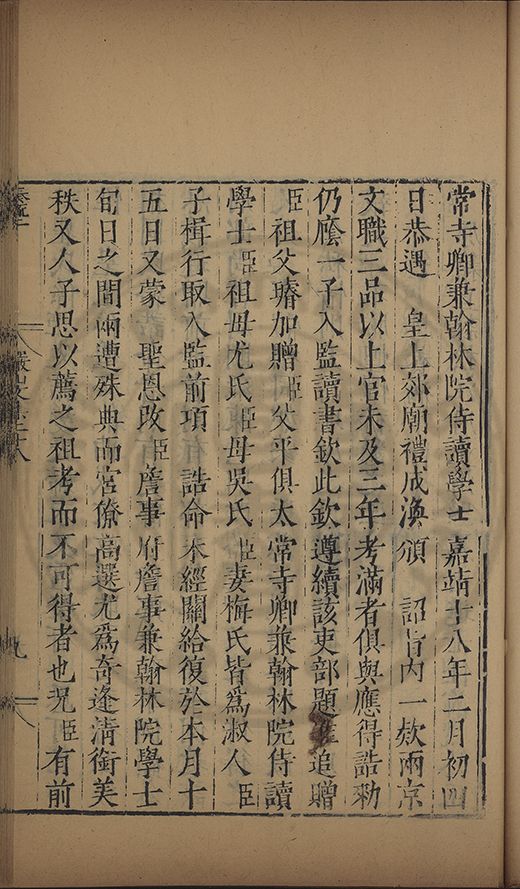 常寺卿兼翰林院侍讀學士　嘉靖十八年二月初四
日恭遇　皇上郊廟禮成渙頒　詔旨內一欵兩京
文職三品以上官未及三年考滿者俱與應得誥勑
仍廕一子入監讀書欽此欽遵續該吏部題追贈
臣祖父瑃加贈臣父平俱太常寺卿兼翰林院侍讀
學士臣祖母尤氏臣母吳氏臣妻梅氏皆爲淑人臣
子楫行取入監前項　誥命未經關給復於本月十
五日又蒙　聖恩改臣詹事府詹事兼翰林院學士
旬日之間兩遭殊典而宮僚高選尤爲奇逢淸銜美
秩又人子思以薦之祖考而不可得者也況臣有前
九